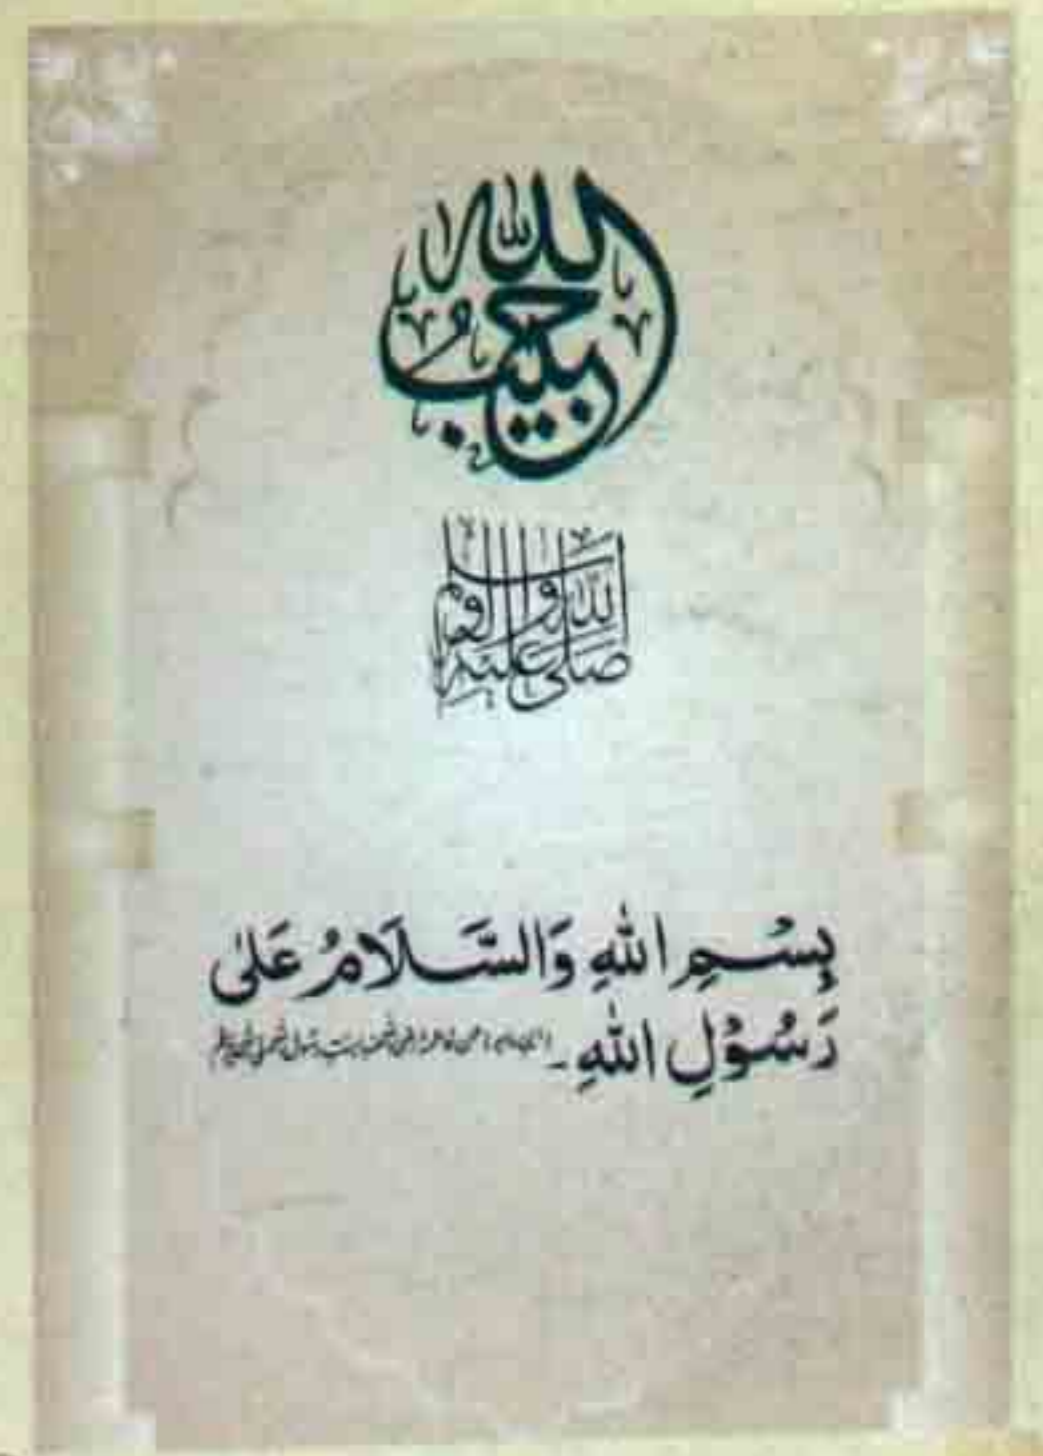 حبیب الله
صلى الله عليه واله وسلم
بِسْمِ اللهِ وَالسَّلَامُ عَلٰى
رَسُوْلِ اللهِ۔